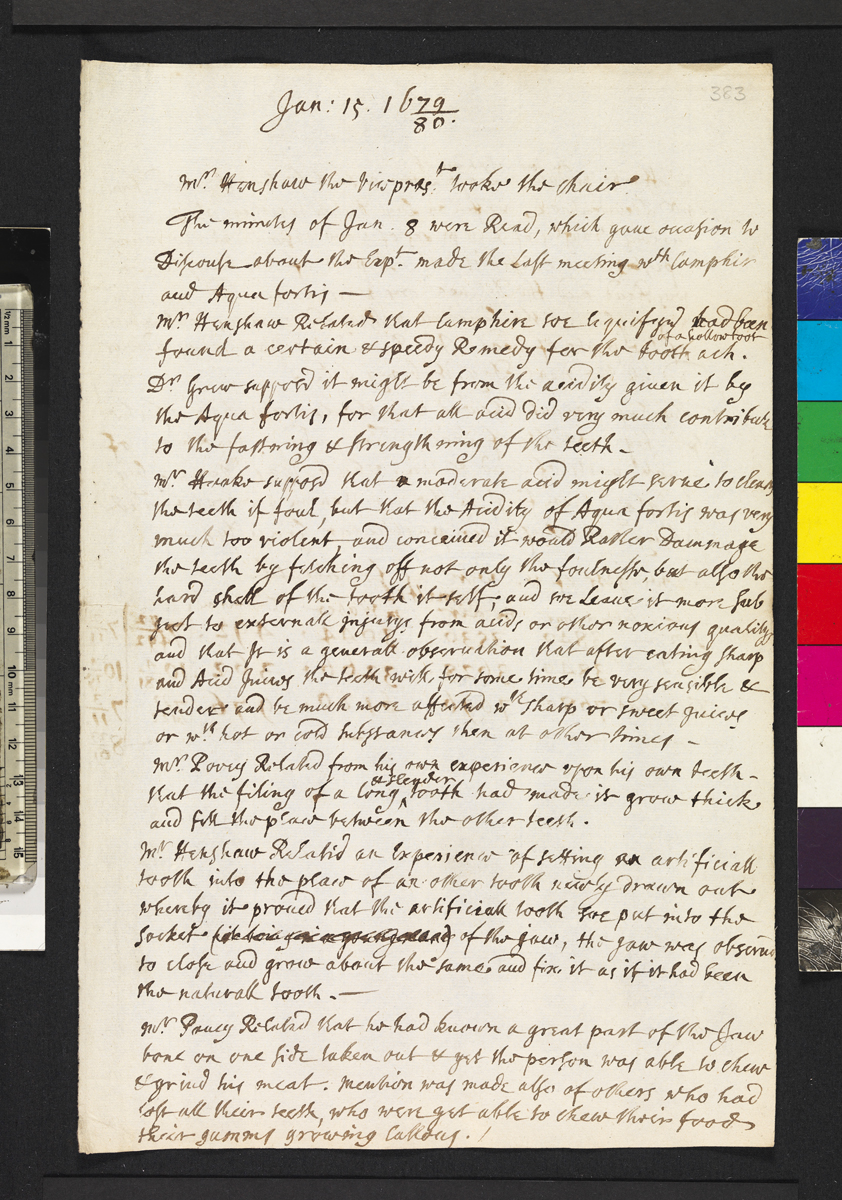 383
Jan: 15. 1679/80.
Mr. Henshaw the Vicepresdt. tooke the chair.
The minutes of Jan. 8 were Read, which gaue occasion to
Discourse about the Expt. made the Last meeting wth Camphir
and Aqua fortis —
Mr. Henshaw Related that Camphire soe liquifyd had been
of a hollow toot
found a certain & speedy Remedy for the tooth ach.
Dr. Grew supposd it might be from the acidity given it by
the Aqua fortis, for that all acid did very much contribute
to the fastning & strengthning of the teeth.
Mr. Hooke supposd that a moderate acid might serue to clens
the teeth if foul, but that the Acidity of Aqua fortis was very
much too violent, and conceiued it would Rather Dammage
the teeth by fetching off not only the foulnesse, but also the
hard shell of the tooth it self, and soe Leaue it more Sub
ject to externall Injurys from acids or other noxious qualitys
and that It is a generall obseruation that after eating sharp
and Acid Juices the teeth will for some time be very sensible &
tender and be much more affected wth sharp or sweet Juices
or wth hot or cold substances then at other times —
Mr. Povey Related from his own experience vpon his own teeth —
& slender
that the filing of a long ^ tooth had made it grow thick
and fill the place between the other teeth.
Mr. Henshaw Related an Experience of setting an artificiall
tooth into the place of an other tooth newly drawn out
whereby it proued that the artificiall tooth soe put into the
socket of the jaw, the jaw was obseru
to close and grow about the same and fix it as if it had been
the naturall tooth. —
Mr. Povey Related that he had known a great part of the Jaw
bone on one side taken out & yet the person was able to chew
& grind his meat. mention was made also of others who had
lost all their teeth, who were yet able to chew their food
their gumms growing Callous. /
1/2 mm 1
2
3
4
5
6
7
8
9
10 mm
11
12
13
14
15